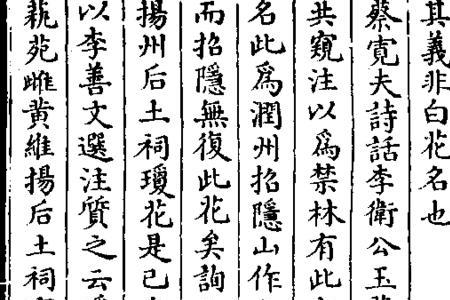 其義非白花名也
蔡寛夫詩話李衛公玉
共窺注以爲禁林有此
名此爲潤州招隱山作
而招隱無復此花矣詢
揚州后土祠瓊花是已
以李善文選注質之云
蓺苑雌黄維揚后土祠